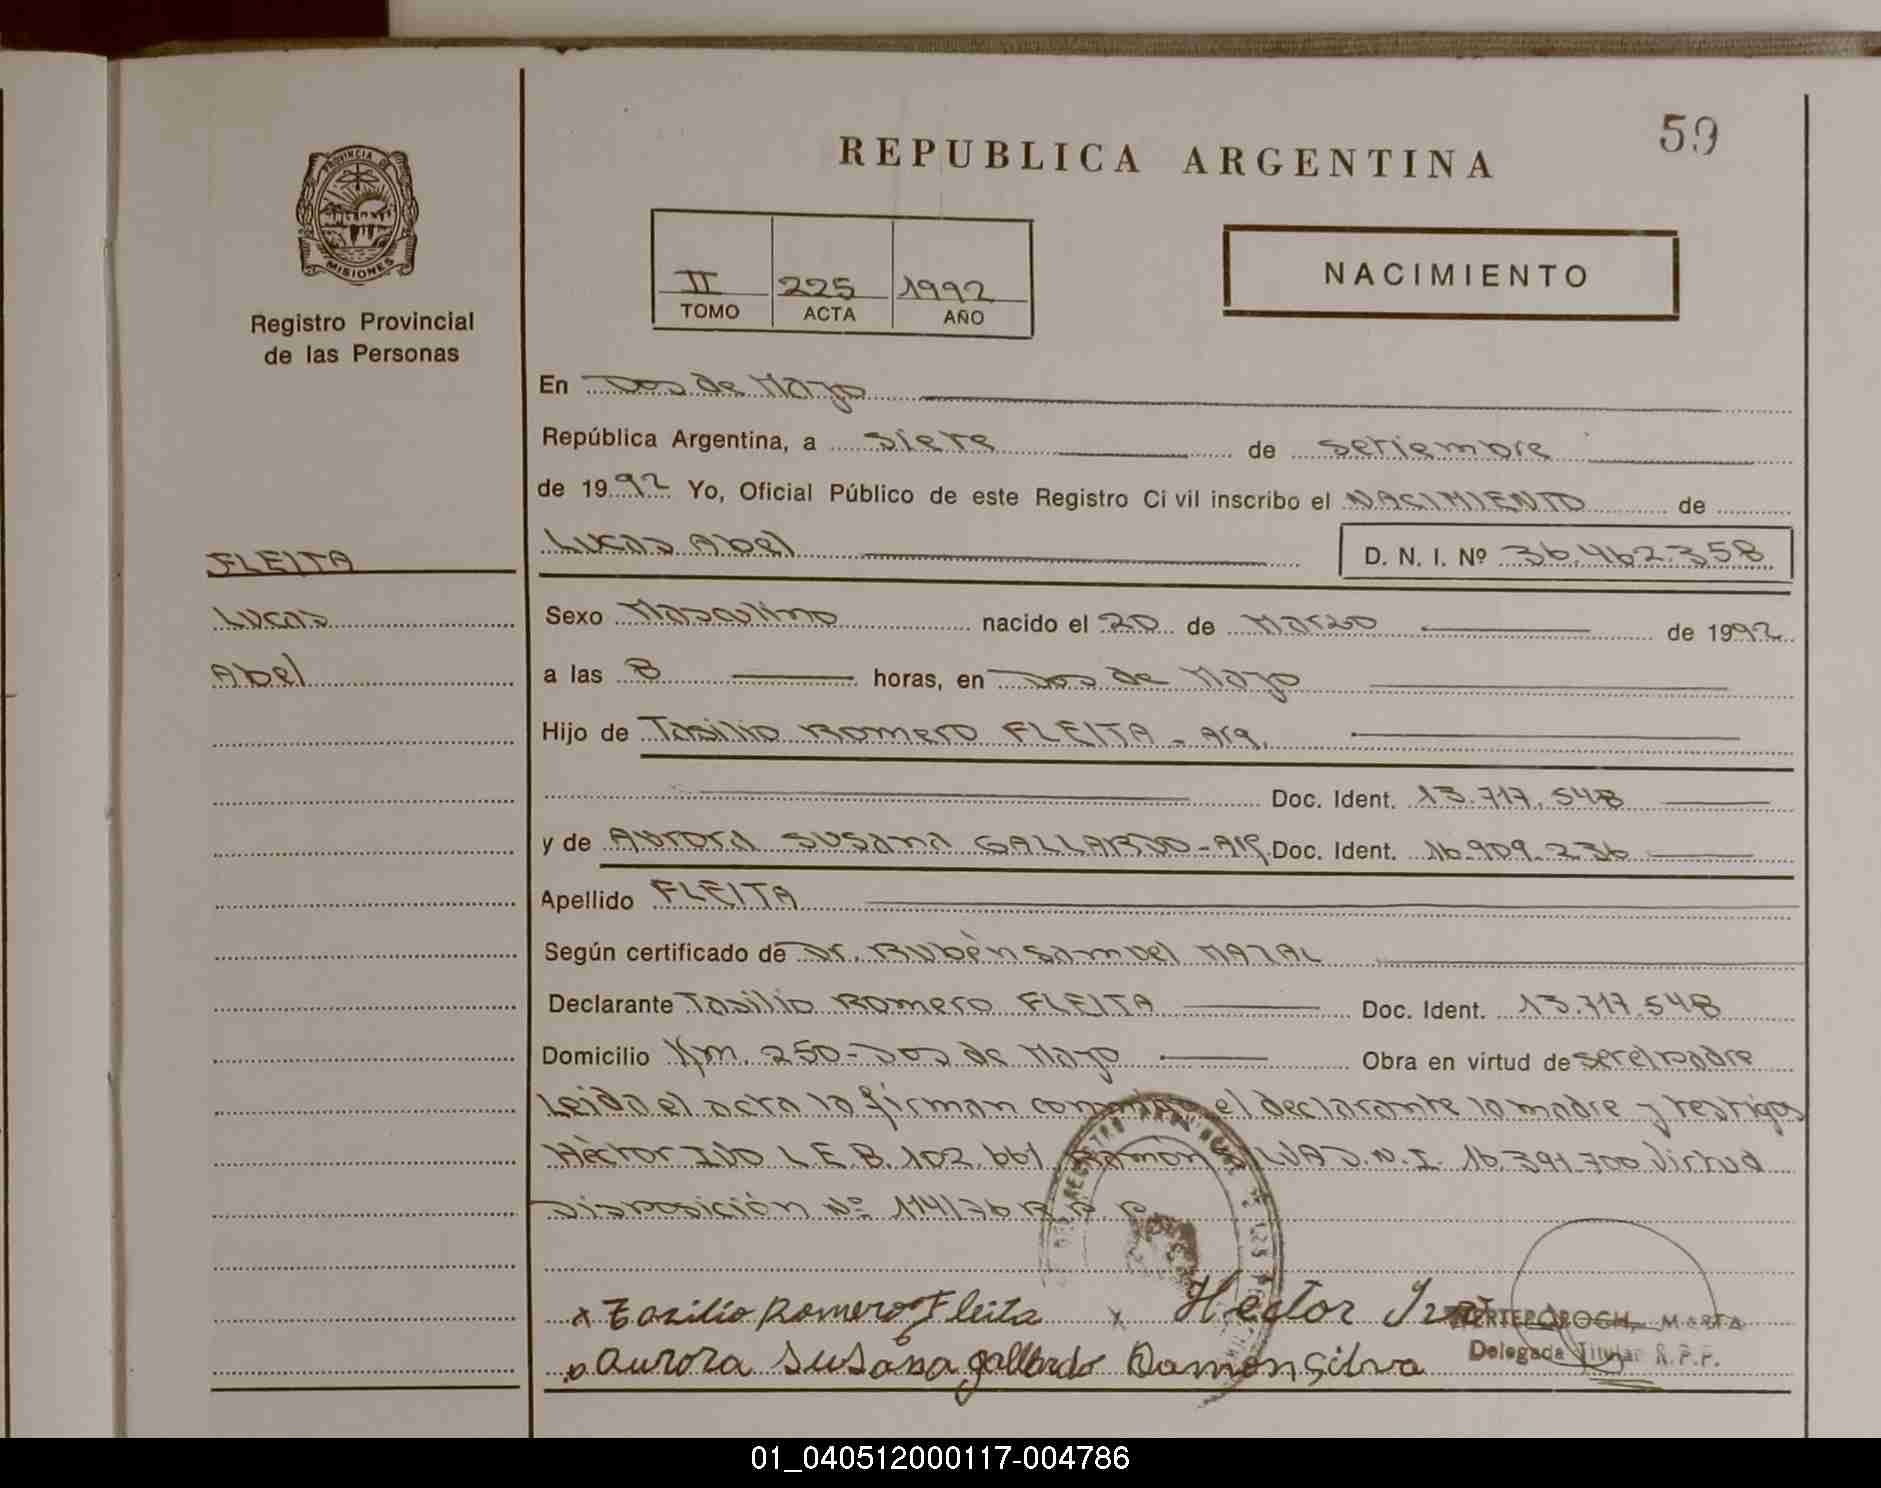 59
REPUBLICA ARGENTINA
PROVINCIA DE
MISIONES
Registro Provincial
de las Personas
II 225 1992
TOMO ACTA AÑO
NACIMIENTO
En Dos de Mayo
República Argentina, a siete de setiembre
de 1992 Yo, Oficial Público de este Registro Civil inscribo el NACIMIENTO de
Lucas Abel D. N. I. Nº 36.462.358
FLEITA
Lucas
Abel
Sexo Masculino nacido el 20 de Marzo de 1992
a las 8 horas, en Dos de Mayo
Hijo de Tasilio Romero FLEITA - Arg.
Doc. Ident. 13.717.548
y de Aurora Susana GALLARDO - Arg. Doc. Ident. 16.909.236
Apellido FLEITA
Según certificado de Dr. Rubèn Samuel MAZAL
Declarante Tasilio Romero FLEITA Doc. Ident. 13.717.548
Domicilio Km. 250 - Dos de Mayo Obra en virtud de ser el padre
Leida el acta la firman conmigo el declarante la madre y testigos
Hèctor IVO L.E. 8.102.661 Ramón SILVA D.N.I. 16.391.700 Virtud
Disposición Nº 114/76 R.P.P.
x Tasilio Romero Fleita x Hector
Aurora Susana gallardo Ramon Silva
MARTA
Delegada Titular R.P.P.
01_040512000117-004786